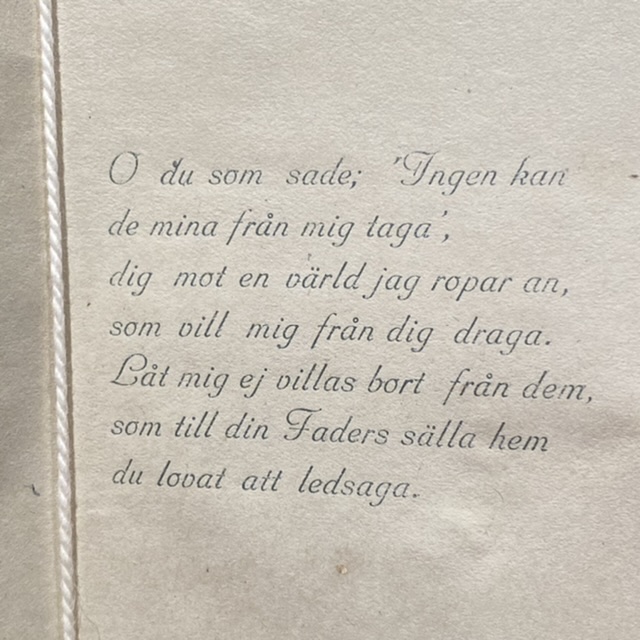 O du som sade; 'Ingen kan
de mina från mig taga',
dig mot en värld jag ropar an,
som vill mig från dig draga.
Låt mig ej villas bort från dem,
som till din Faders sälla hem
du lovat att ledsaga.